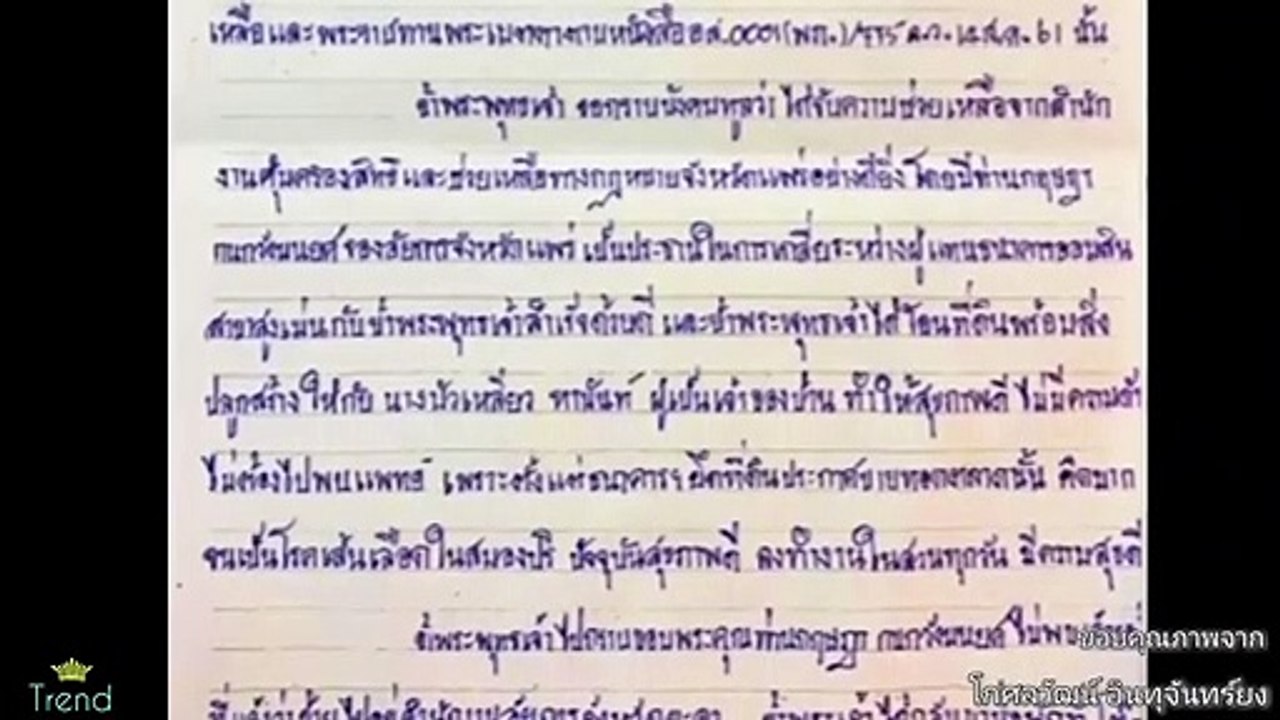 เหลือและพระราชทานพระเมตตาตามหนังสือ อส.0001(พก.)/815 ลว. 12 ส.ค. 61 นั้น
ข้าพระพุทธเจ้า ขอกราบบังคมทูลว่า ได้รับความช่วยเหลือจากสำนัก
งานคุ้มครองสิทธิและช่วยเหลือทางกฎหมายจังหวัดแพร่อย่างดียิ่ง โดยมีท่านกฤษฎา
รองอัยการจังหวัดแพร่ เป็นประธานในการเกลี่ยระหว่างผู้แทนธนาคารออมสิน
สาขาสูงเม่นกับข้าพระพุทธเจ้าสำเร็จด้วยดี และข้าพระพุทธเจ้าได้โอนที่ดินพร้อมสิ่ง
ปลูกสร้างให้กับ นางบัวเหลี่ยว ผู้เป็นเจ้าของบ้าน ทำให้สุขภาพดี ไม่มีความดัน
ไม่ต้องไปพบแพทย์ เพราะตั้งแต่ธนาคารฯ ยึดที่ดินประกาศขายทอดตลาดนั้น คิดมาก
จนเป็นโรคเส้นเลือดในสมองปริ ปัจจุบันสุขภาพดี ลงทำงานในสวนทุกวัน มีความสุขดี
ข้าพระพุทธเจ้าไปกราบขอบพระคุณท่านกฤษฎา ไม่พบ
ขอบคุณภาพจาก
Trend
โกศลวัฒน์ อินทุจันทร์ยง